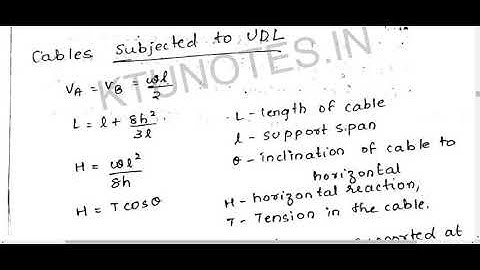 Cables Subjected to UDL
KTUNOTES.IN
V_A = V_B = ωl/2
L = l + 8h²/3l
H = ωl²/8h
H = T cosθ
L - length of cable
l - support span
θ - inclination of cable to
horizontal
H - horizontal reaction,
T - Tension in the cable.
at